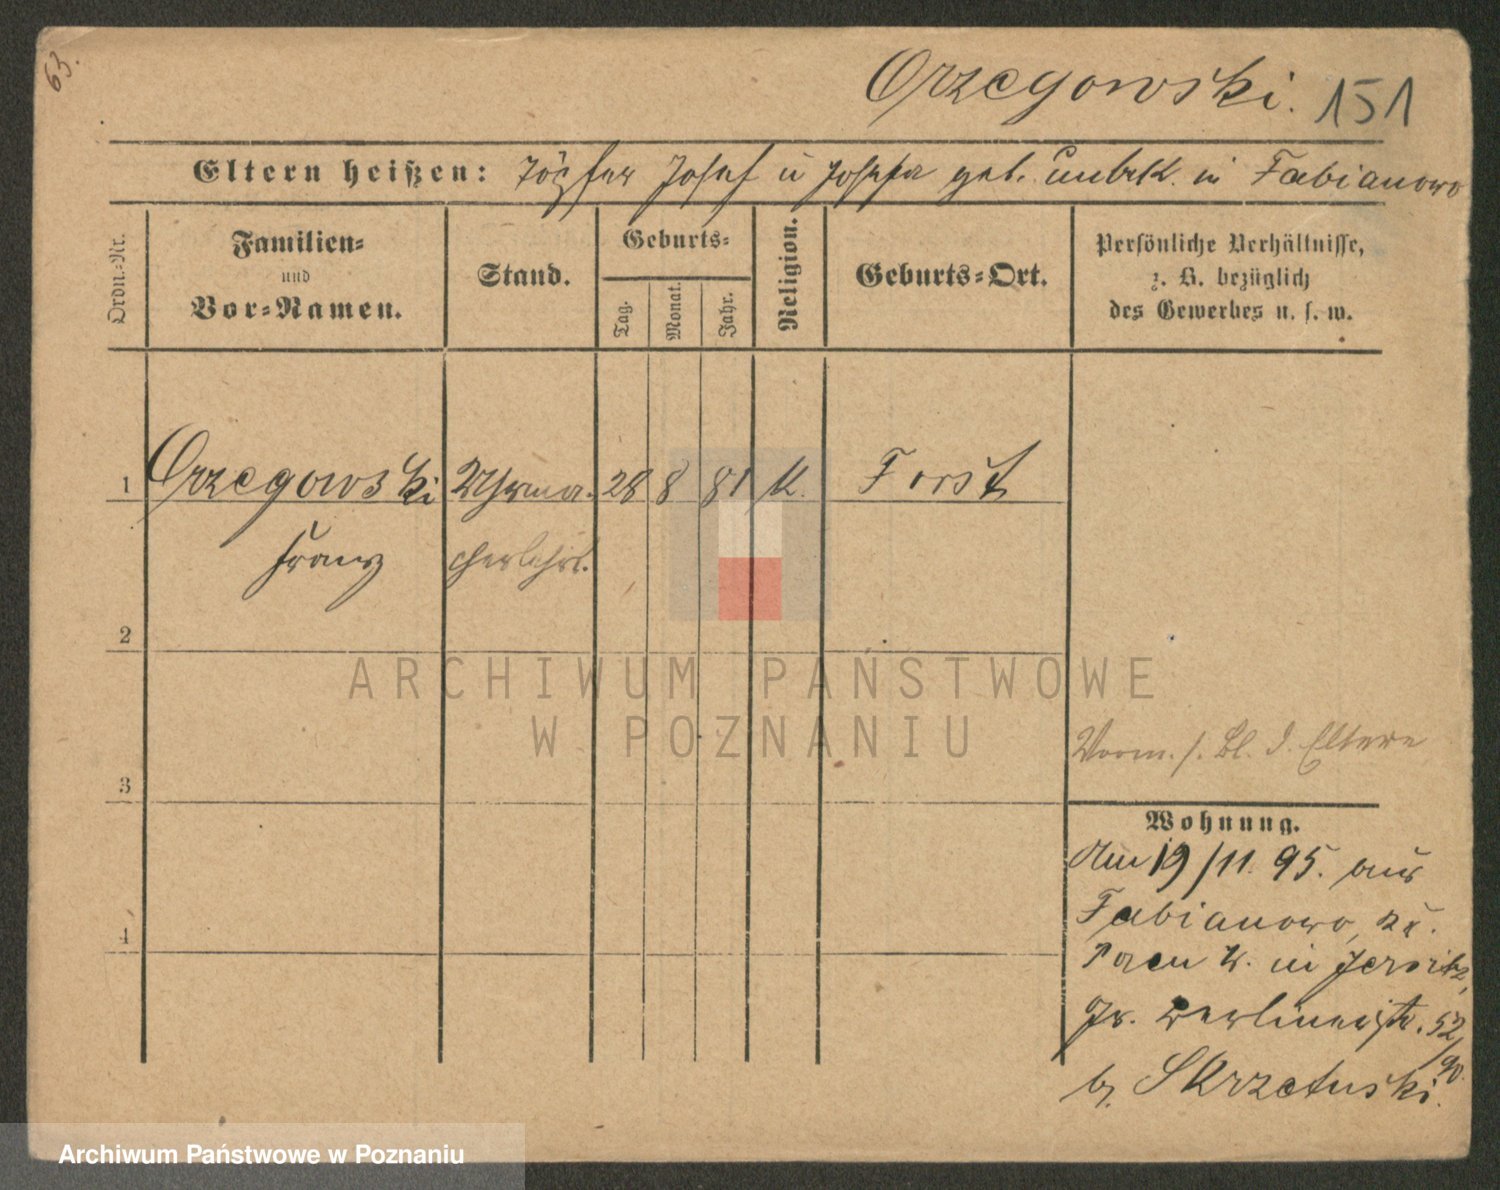 63.
Orzegowski. 151
Eltern heißen: Töpfer Josef u Josefa geb. unbek. in Fabianowo
Ordn.-Nr.
Familien-
und
Vor-Namen.
Stand.
Geburts-
Tag.
Monat.
Jahr.
Religion.
Geburts-Ort.
Persönliche Verhältnisse,
z. B. bezüglich
des Gewerbes u. s. w.
1 Orzegowski Uhrma- 28 8 81 k. Forst
Franz cherlehrl.
2
ARCHIWUM PAŃSTWOWE
W POZNANIU
Vorm. s. Bl. d. Eltern
3
Wohnung.
Am 19/11. 95. aus
Fabianowo,
4
in Jersitz,
Gr. Berlinerstr. 52
/90.
b. Skrzetuski.
Archiwum Państwowe w Poznaniu